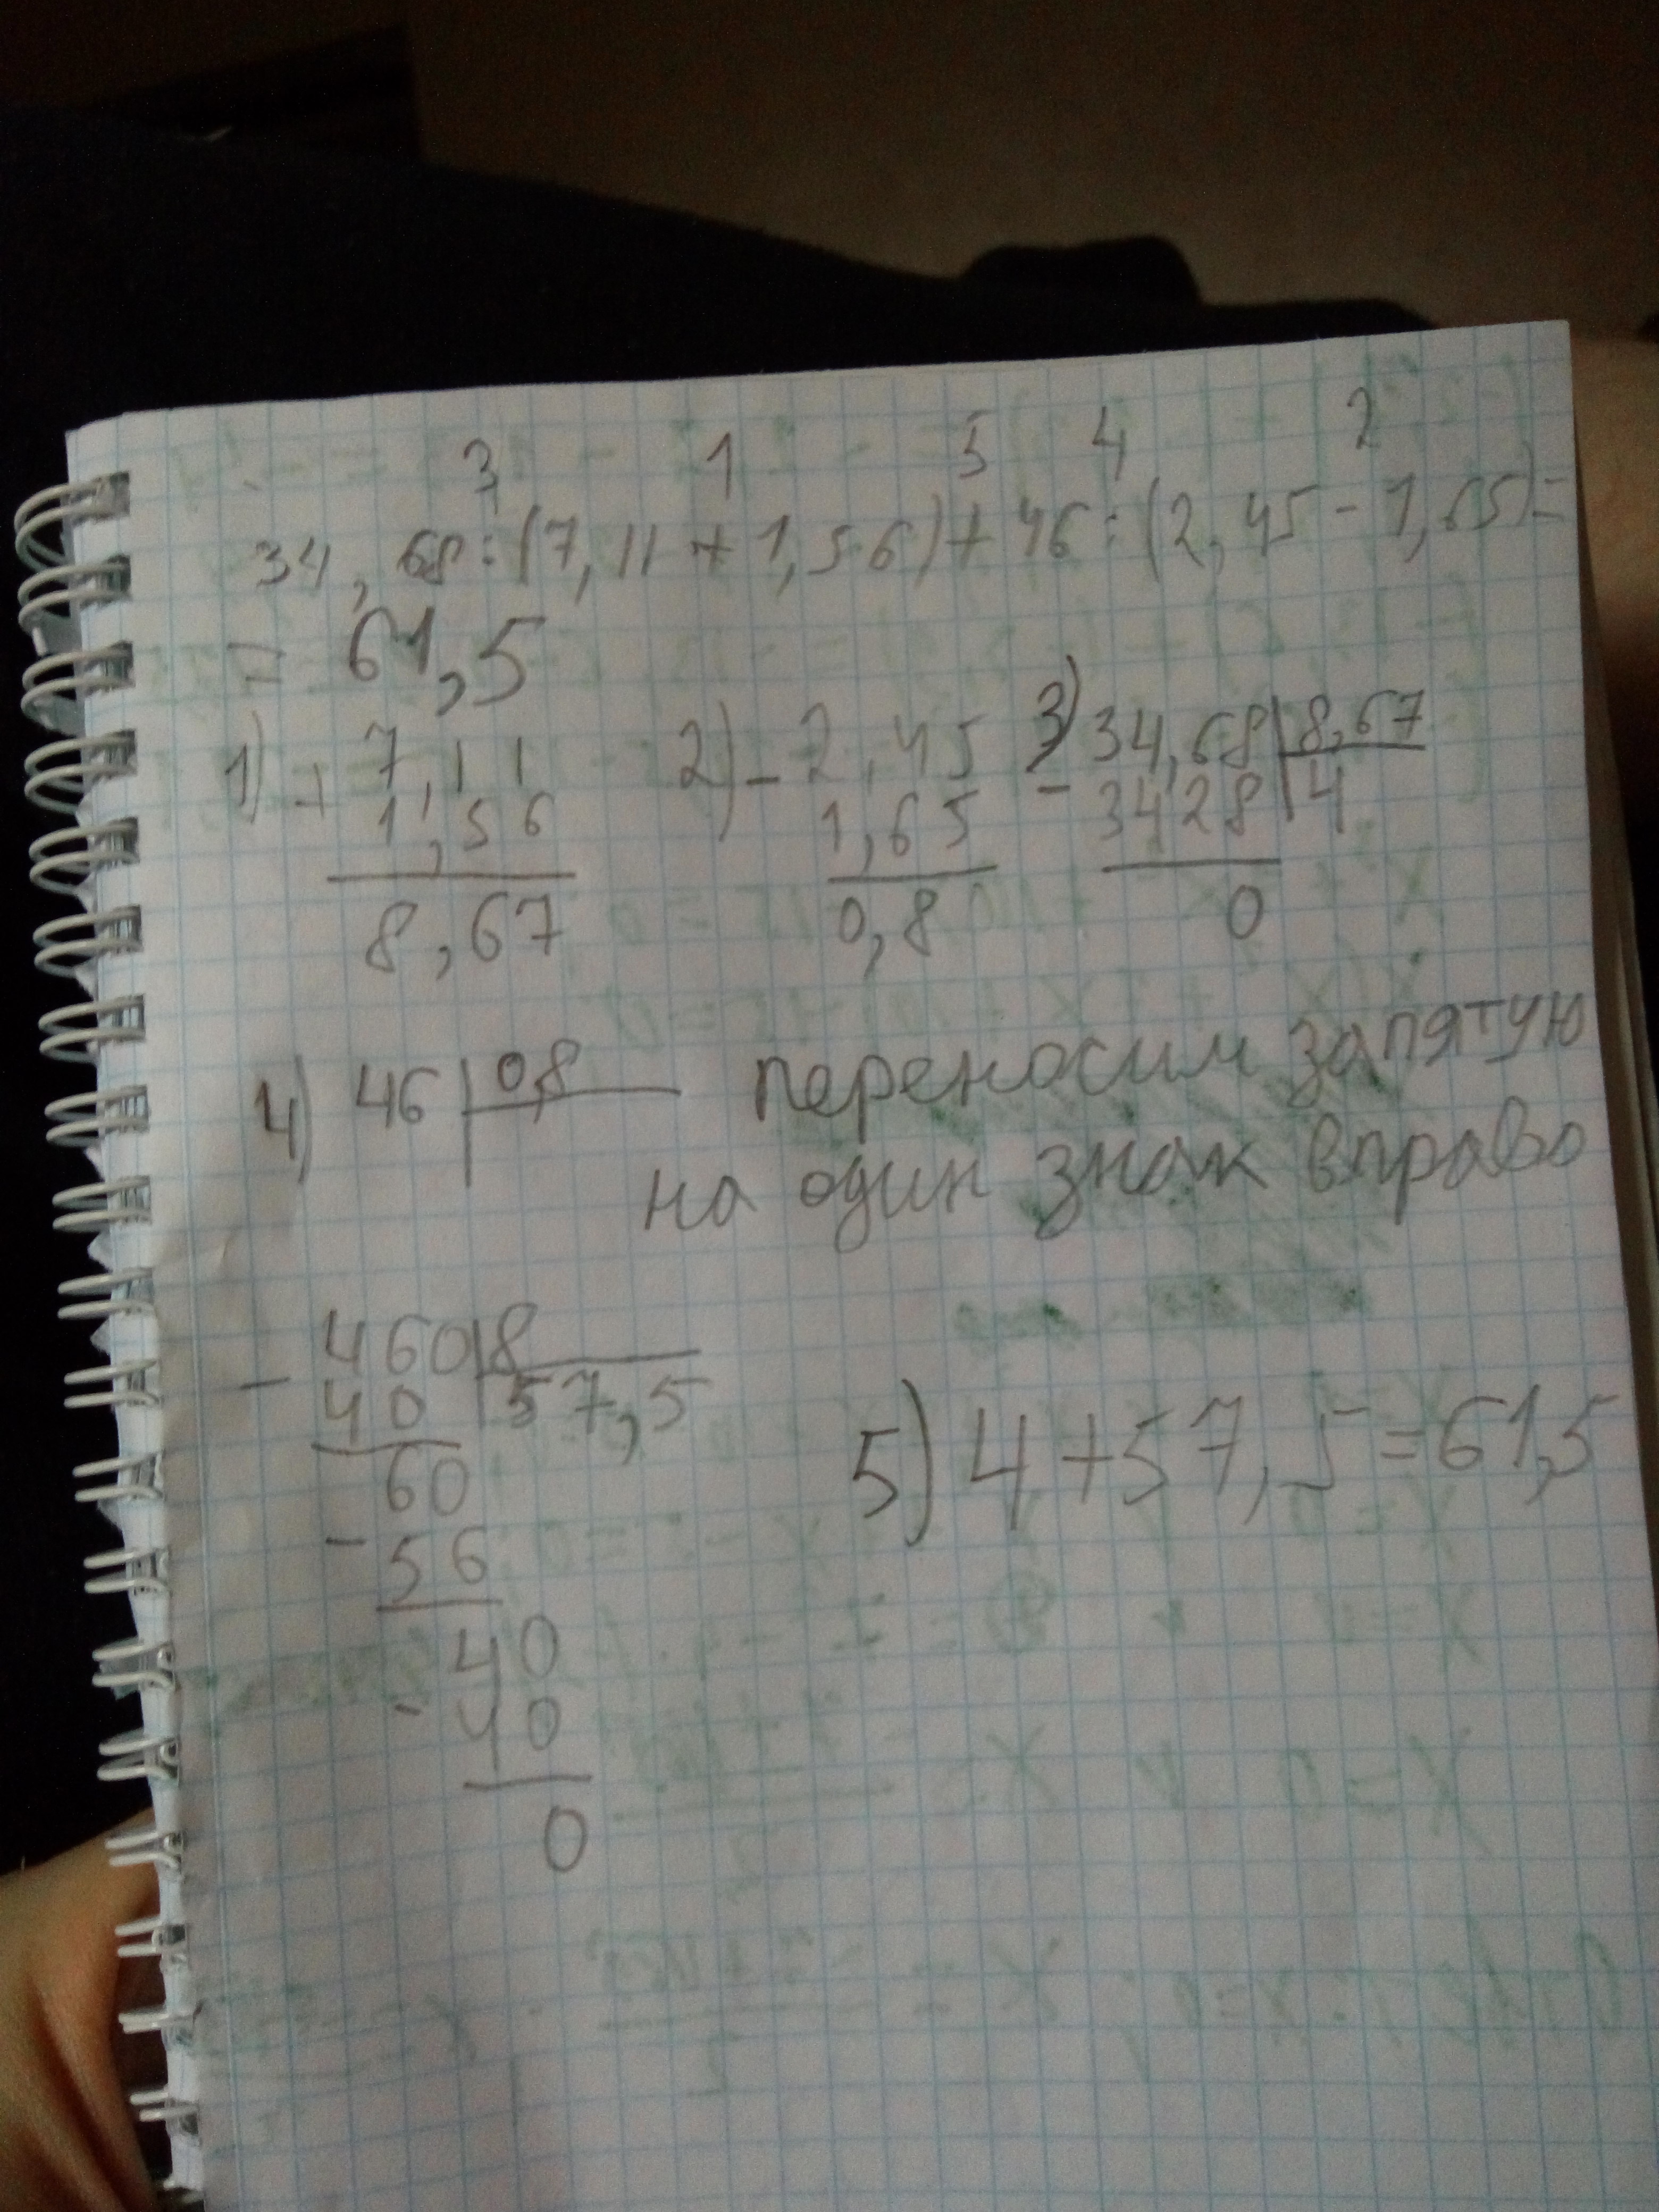 3 1 5 4 2
34,68:(7,11+1,56)+46:(2,45-1,65)=
= 61,5
1) + 7,11 2) - 2,45 3) 34,68 | 8,67
1,56 1,65 - 3428 | 4
8,67 0,8 0
4) 46 | 0,8 переносим запятую
на один знак вправо
- 460 | 8
40 | 57,5
60 5) 4+57,5=61,5
- 56
40
- 40
0